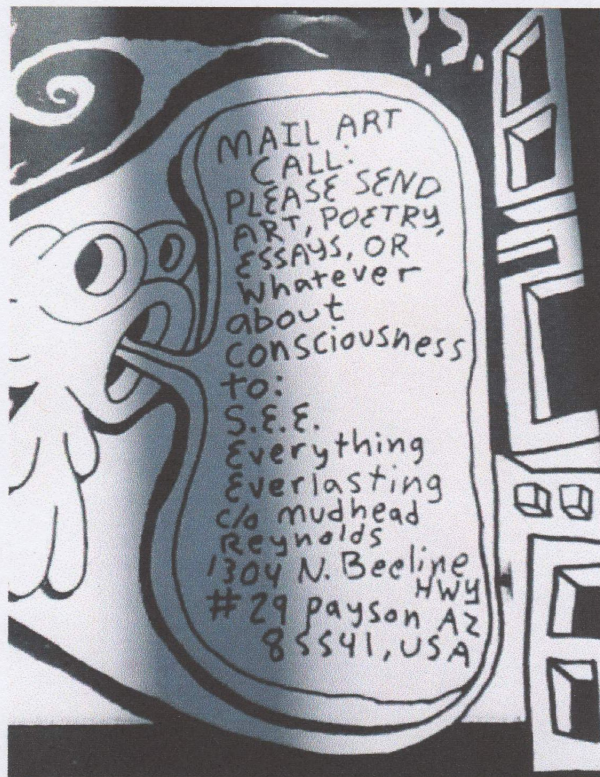 P.S.
MAIL ART
CALL:
PLEASE SEND
ART, POETRY,
ESSAYS, OR
whatever
about
consciousness
to:
S.E.E.
Everything
Everlasting
c/o mudhead
Reynolds
1304 N. Beeline
HWY
#29 payson AZ
85541, USA